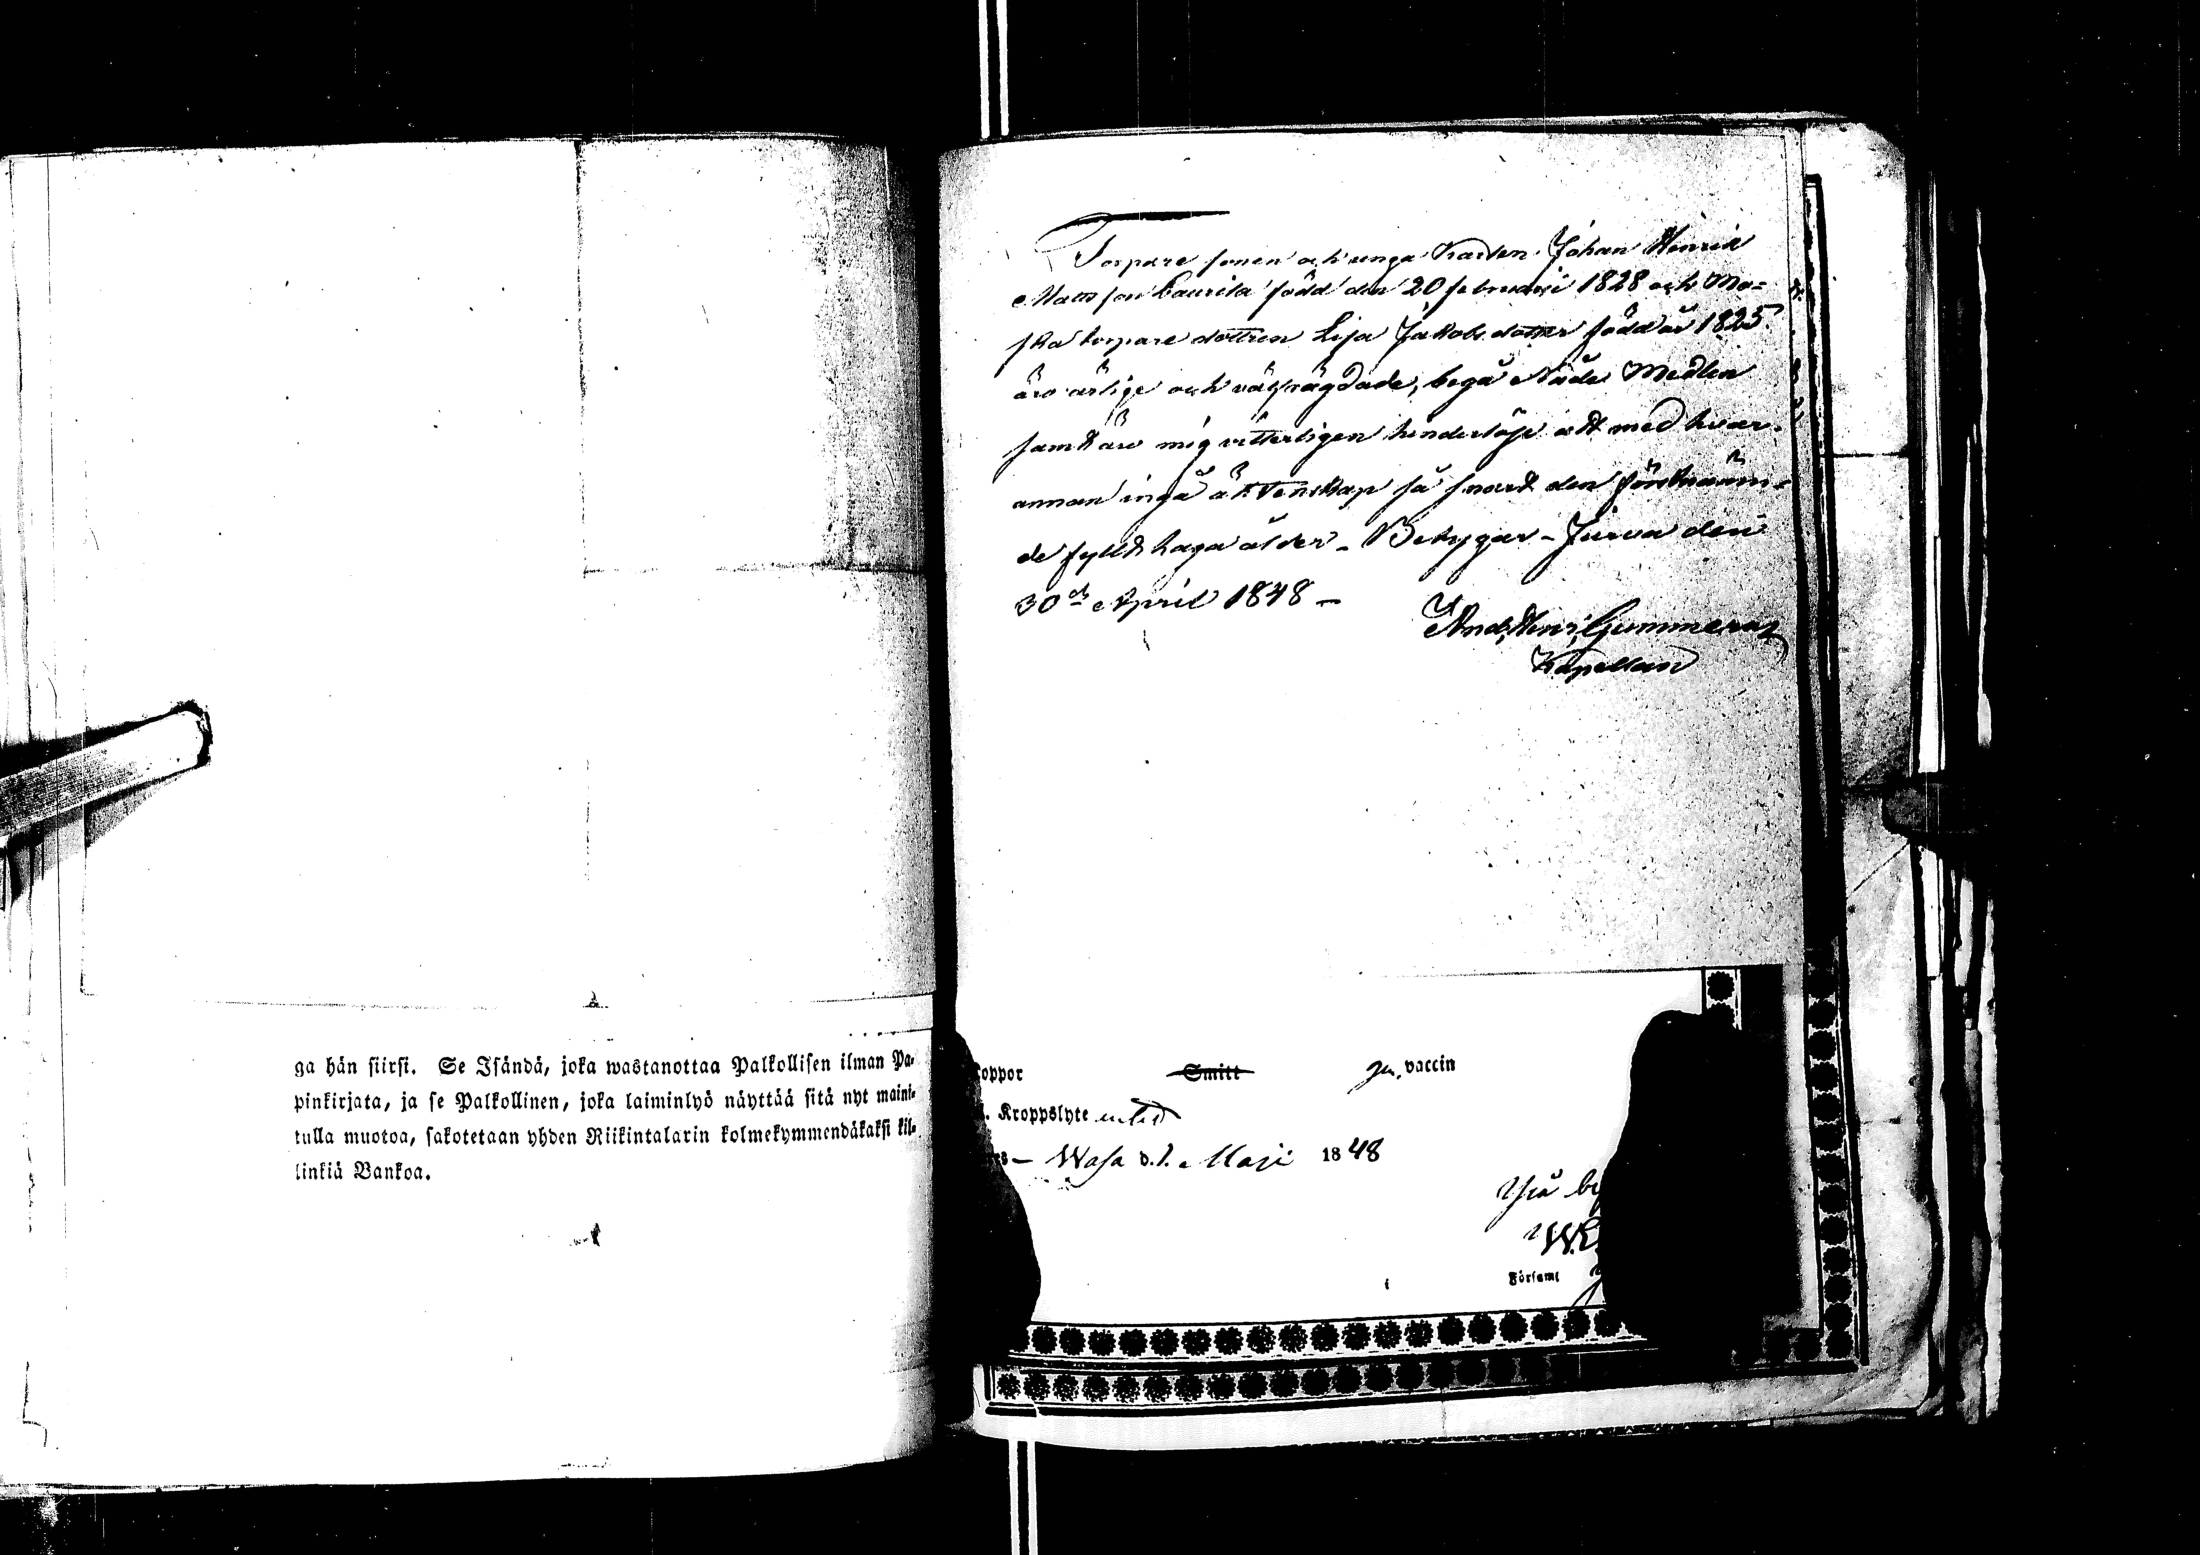 ga hän siirsi. Se Isändä, joka wastanottaa Palkollisen ilman Pa-
pinkirjata, ja se Palkollinen, joka laiminlyö näyttää sitä nyt maini-
tulla muotoa, sakotetaan yhden Riikintalarin kolmekymmendäkaksi kil-
linkiä Bankoa.
Torpare sonen och unga Karlen Johan Henrik
Mattsson Laurila född den 20 februari 1828 och Mo-
ska torpare dottren Lisa Jakobsdotter född år 1825
äro ärlige och välfrägdade, begå Nåde Medlen
samt äro mig vitterligen hinderlöse att med hvar-
annan ingå äktenskap så snart den förstnämn-
de fyllt laga ålder - Betygar - Jurva den
30de April 1848 -
And. Henr. Gummerus
Kapellan
oppor Smitt gen. vaccin
Kroppslyte
Wasa d. 1 Maji 1848
W.E.
Församl